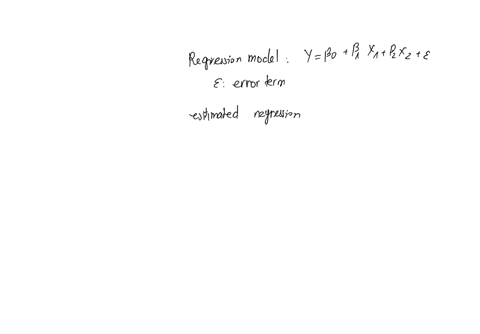 Regression model : Y = β0 + β1 X1 + β2 X2 + ε
ε: error term
estimated regression